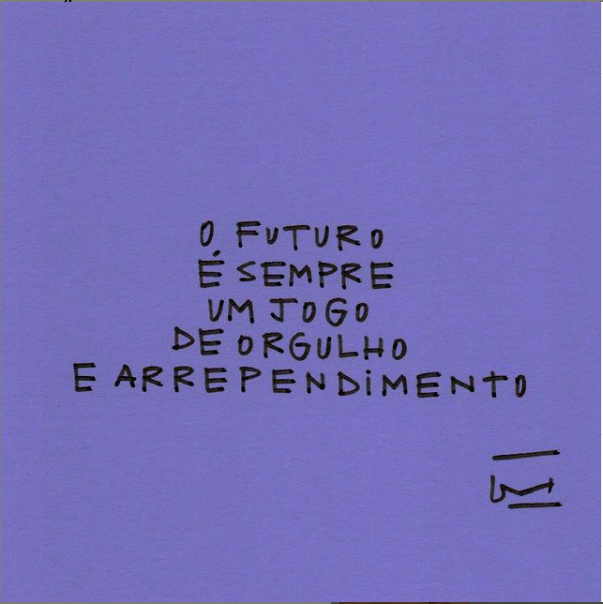 O FUTURO
É SEMPRE
UM JOGO
DE ORGULHO
E ARREPENDIMENTO